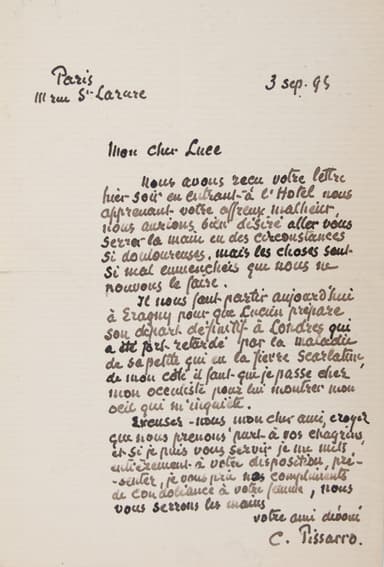 Paris
111 rue St Lazare
3 sep. 95
Mon cher Luce
Nous avons reçu votre lettre
hier soir en entrant à l'Hotel nous
apprenant votre affreux malheur,
nous aurions bien désiré aller vous
serrer la main en des circonstances
si douloureuses, mais les choses sont
si mal emmenchées que nous ne
pouvons le faire.
Il nous faut partir aujourd'hui
à Eragny pour que Lucien prépare
son départ définitif à Londres qui
a été fort retardé par la maladie
de sa petite qui eu la fierre Scarlatine,
de mon côté il faut que je passe chez
mon occuliste pour lui montrer mon
oeil qui m'inquiète.
Excusez-nous mon cher ami, croyez
que nous prenons part à vos chagrins,
et si je puis vous servir je me mets
entièrement à votre disposition, pré-
-senter, je vous prie nos compliments
de condoléance à votre femme, nous
vous serrons les mains
votre ami dévoué
C. Pissarro.